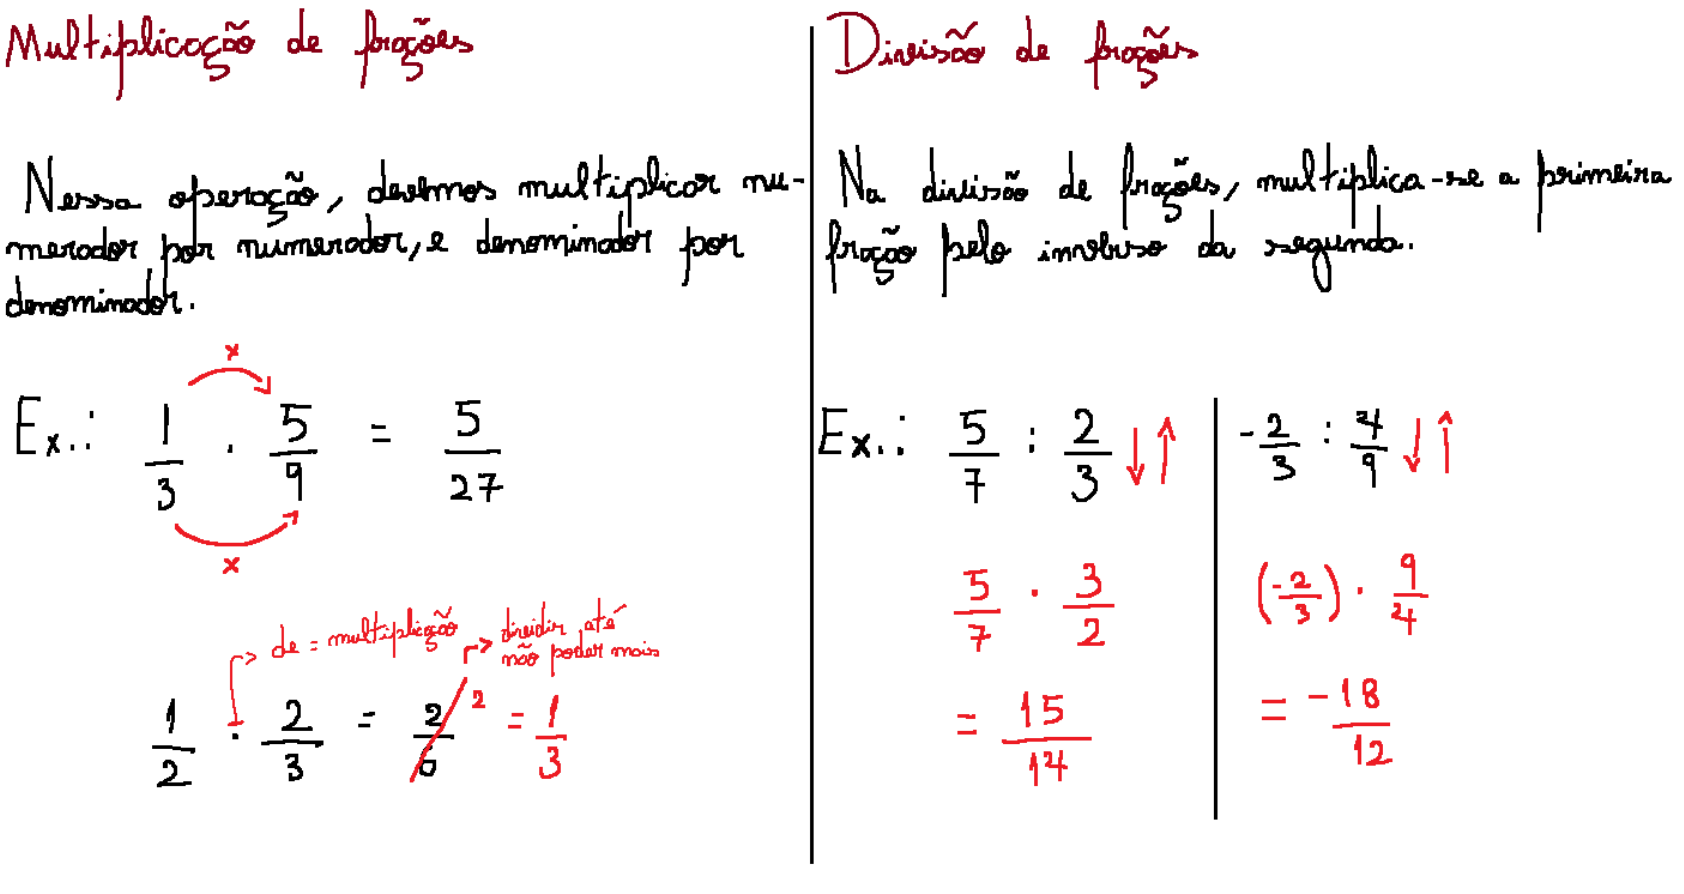 Multiplicação de frações
Nessa operação, devemos multiplicar nu-
merador por numerador, e denominador por
denominador.
x
Ex.: 1/3 . 5/9 = 5/27
x
de = multiplicação
dividir até
não poder mais
1/2 . 2/3 = 2/6 2 = 1/3
Divisão de frações
Na divisão de frações, multiplica-se a primeira
fração pelo inverso da segunda.
Ex.: 5/7 : 2/3 ↓↑
5/7 . 3/2
= 15/14
-2/3 : 4/9 ↓↑
(-2/3) . 9/4
= -18/12